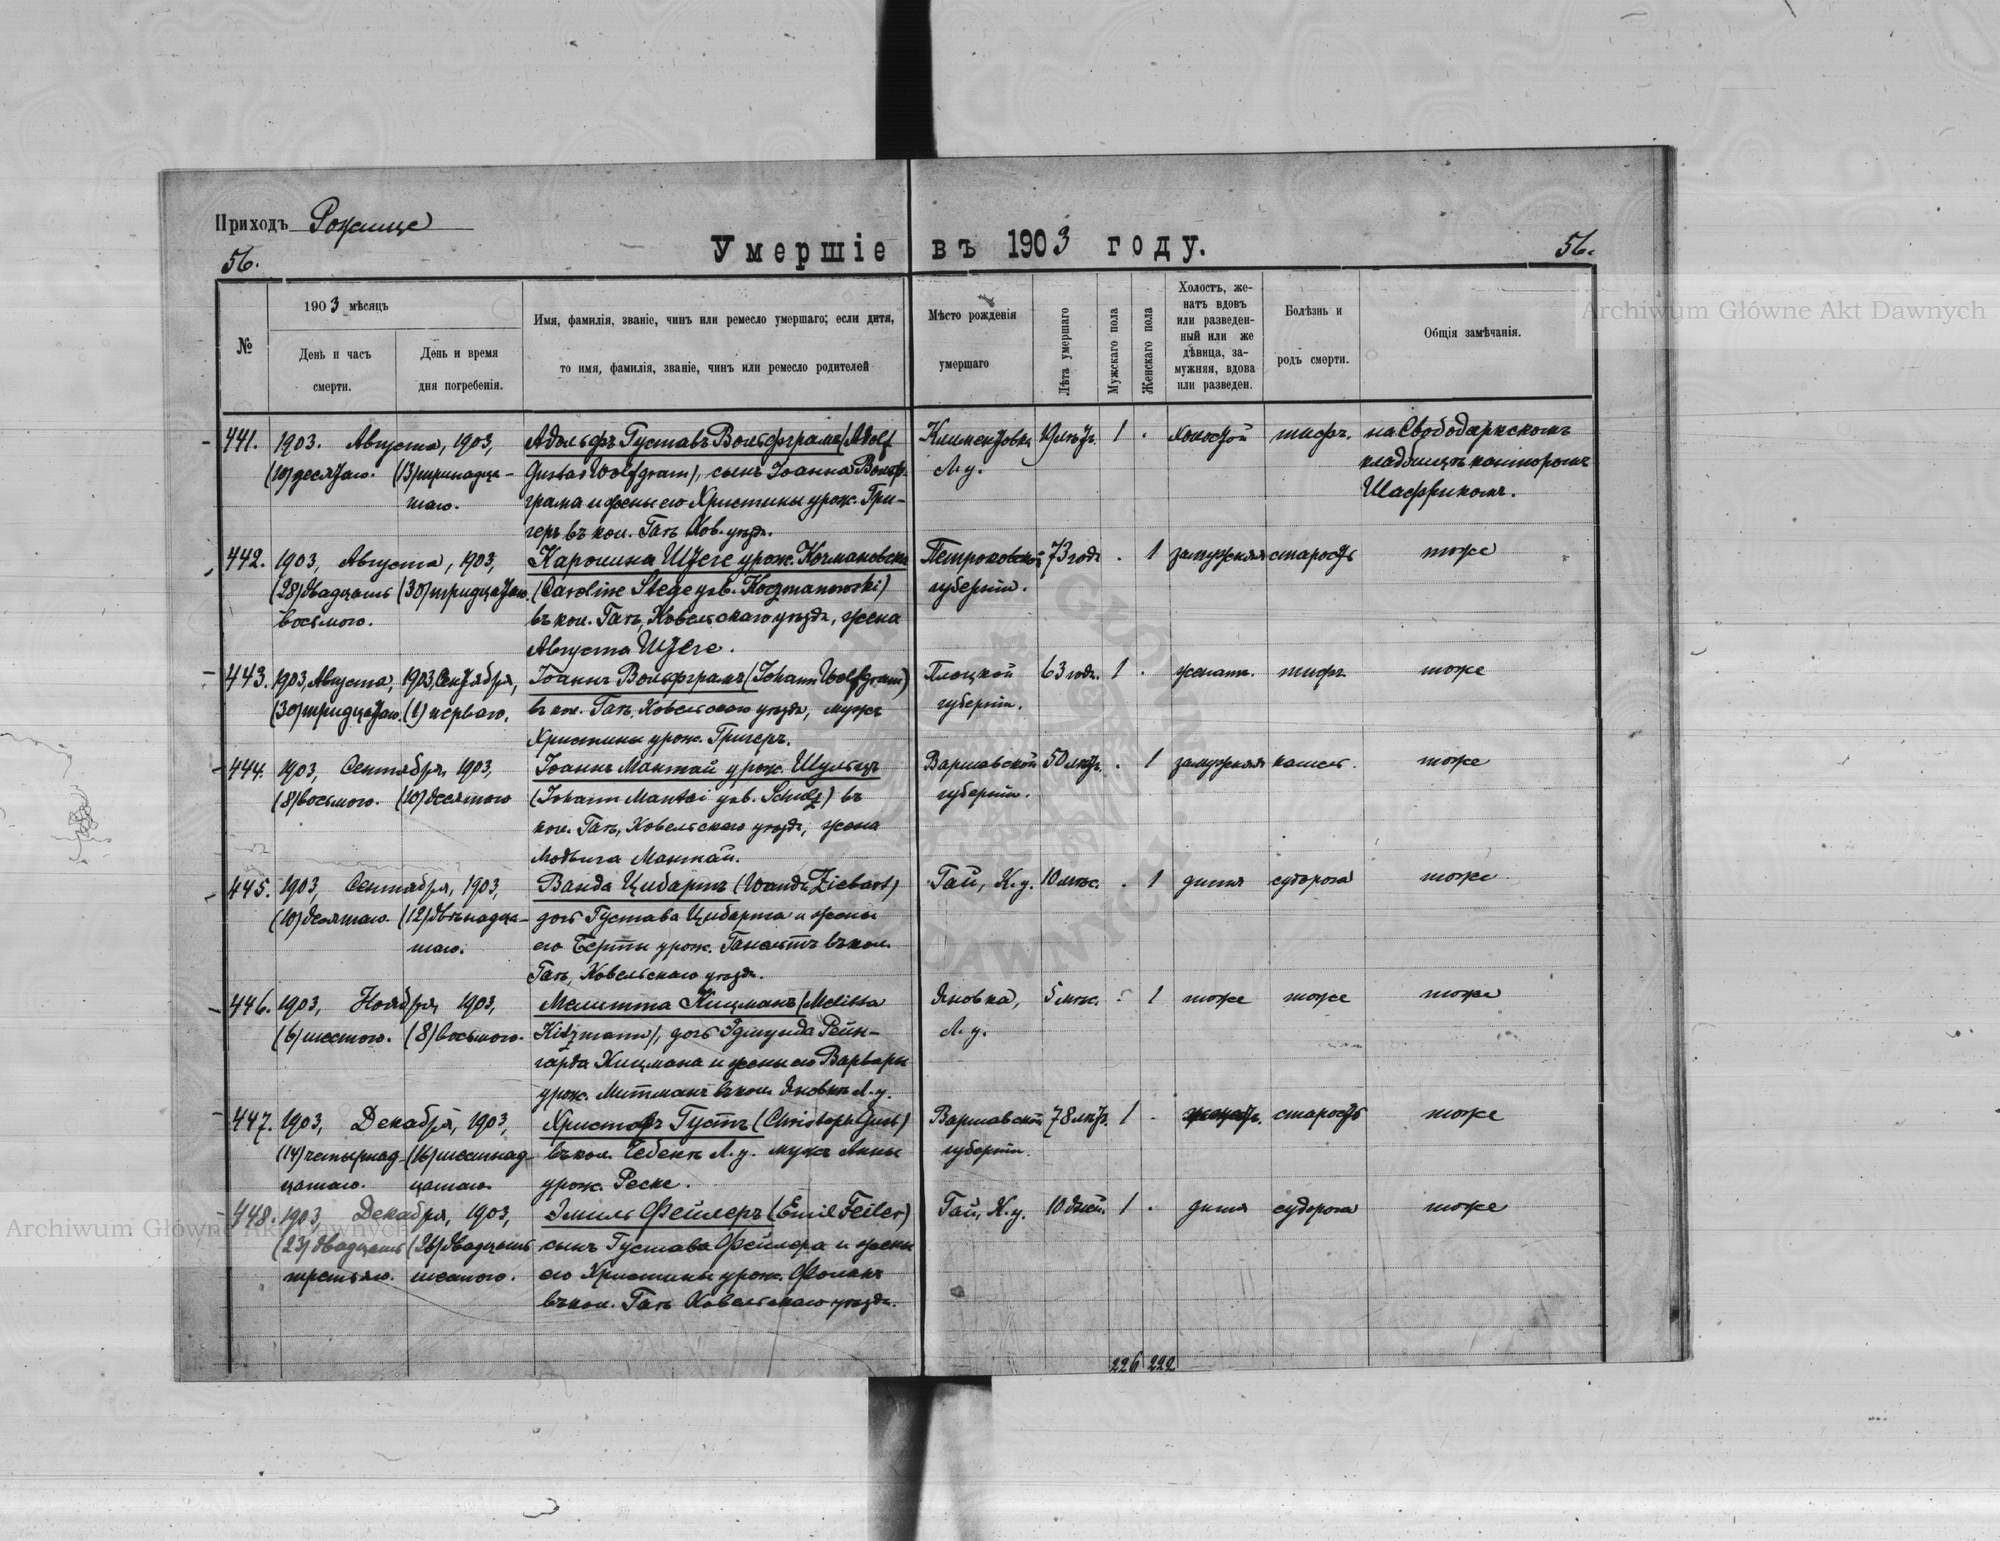 Приходъ Рожище
Умершіе въ 1903 году.
56.
56.
№
1903 мѣсяцъ
День и часъ смерти.
День и время дня погребенія.
Имя, фамилія, званіе, чинъ или ремесло умершаго; если дитя,
то имя, фамилія, званіе, чинъ или ремесло родителей
Мѣсто рожденія
умершаго
Лѣта умершаго
Мужскаго пола
Женскаго пола
Холостъ, же-
натъ вдовъ
или разведен-
ный или же
дѣвица, за-
мужняя, вдова
или разведен.
Болѣзнь и
родъ смерти.
Общія замѣчанія.
441. 1903. Августа, 1903, Адольфъ Густавъ Вольфграмъ (Adolf Климентовка 1 . холостой тифъ. на Свободаркскомъ
(10) десятаго. (13) тринадца- Gustav Wolfgram), сынъ Іоанна Вольф- Л.у. кладбищѣ канторомъ
таго. грама и жены его Христины урож. Гри- Шаффрикомъ.
геръ въ кол. Гать Ков. уѣзда.
442. 1903, Августа, 1903, Каролина Штеге урож. Кочмановски Петроковской 73 года . 1 замужняя старость тоже
(28) двадцать (30) тридцатаго. (Caroline Stege geb. Koczmanowski) губерніи.
восьмого. въ кол. Гать, Ковельскаго уѣзда, жена
Августа Штеге.
443. 1903, Августа, 1903, Сентября, Іоаннъ Вольфграмъ (Johann Wolfgram) Плоцкой 63 года. 1 . женатъ. тифъ тоже
(30) тридцатаго. (1) перваго. въ кол. Гать, Ковельскаго уѣзда, мужъ губерніи.
Христины урож. Григеръ.
444. 1903, Сентября, 1903, Іоаннъ Мантай урож. Шульцъ Варшавской 50 лѣтъ. . 1 замужняя кашель. тоже
(8) восьмого. (10) десятого (Johann Mantai geb. Schulz) въ губерніи.
кол. Гать, Ковельскаго уѣзда, жена
Людвига Мантай.
445. 1903, Сентября, 1903, Ванда Цибартъ (Wanda Ziebart) Гай, К.у. 10 мѣс. . 1 дитя судорога тоже
(10) десятаго (12) двѣнадца- дочь Густава Цибарта и жены
таго. его Берты урож. въ кол.
Гать, Ковельскаго уѣзда.
446. 1903, Ноября, 1903, Мелитта Кицманъ (Melitta Яновка, 5 мѣс. . 1 тоже тоже тоже
(6) шестого. (8) восьмого. Kitzmann), дочь Эдмунда Рейн- Л.у.
гарда Кицмана и жены его Варвары
урож. Митманъ въ кол. Яновкѣ Л.у.
447. 1903, Декабря, 1903, Христофъ Густъ (Christoph Gust) Варшавской 78 лѣтъ. 1 . старость тоже
(14) четырнад- (16) шестнад- въ кол. Л.у. мужъ Анны губерніи.
цатаго. цатаго урож. Реске.
448. 1903, Декабря, 1903, Эмиль Фейлеръ (Emil Feiler) Гай, К.у. 10 дней. 1 . дитя судорога тоже
(23) двадцать (26) двадцать сынъ Густава Фейлера и жены
третьяго. шестого. его Христины урож.
въ кол. Гать Ковельскаго уѣзда.
226 222
Archiwum Główne Akt Dawnych
Archiwum Główne Akt Dawnych